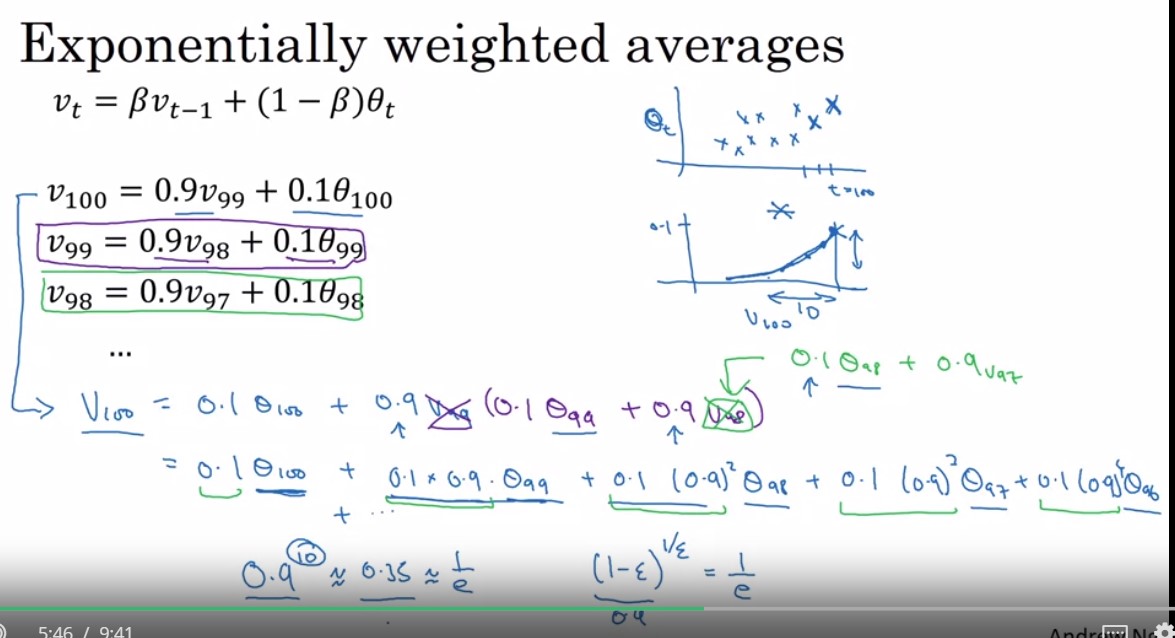 Exponentially weighted averages
vₜ = βvₜ₋₁ + (1 − β)θₜ
v₁₀₀ = 0.9v₉₉ + 0.1θ₁₀₀
v₉₉ = 0.9v₉₈ + 0.1θ₉₉
v₉₈ = 0.9v₉₇ + 0.1θ₉₈
...
θₜ
t=100
0.1
10
V₁₀₀
0.1 θ₉₈ + 0.9 v₉₇
V₁₀₀ = 0.1 θ₁₀₀ + 0.9 v₉₉ (0.1 θ₉₉ + 0.9 v₉₈)
= 0.1 θ₁₀₀ + 0.1 × 0.9 · θ₉₉ + 0.1 (0.9)² θ₉₈ + 0.1 (0.9)³ θ₉₇ + 0.1 (0.9)⁴ θ₉₆
+ ...
0.9¹⁰ ≈ 0.35 ≈ 1/e
(1-ε)^(1/ε) = 1/e
0.9
5:46 / 9:41